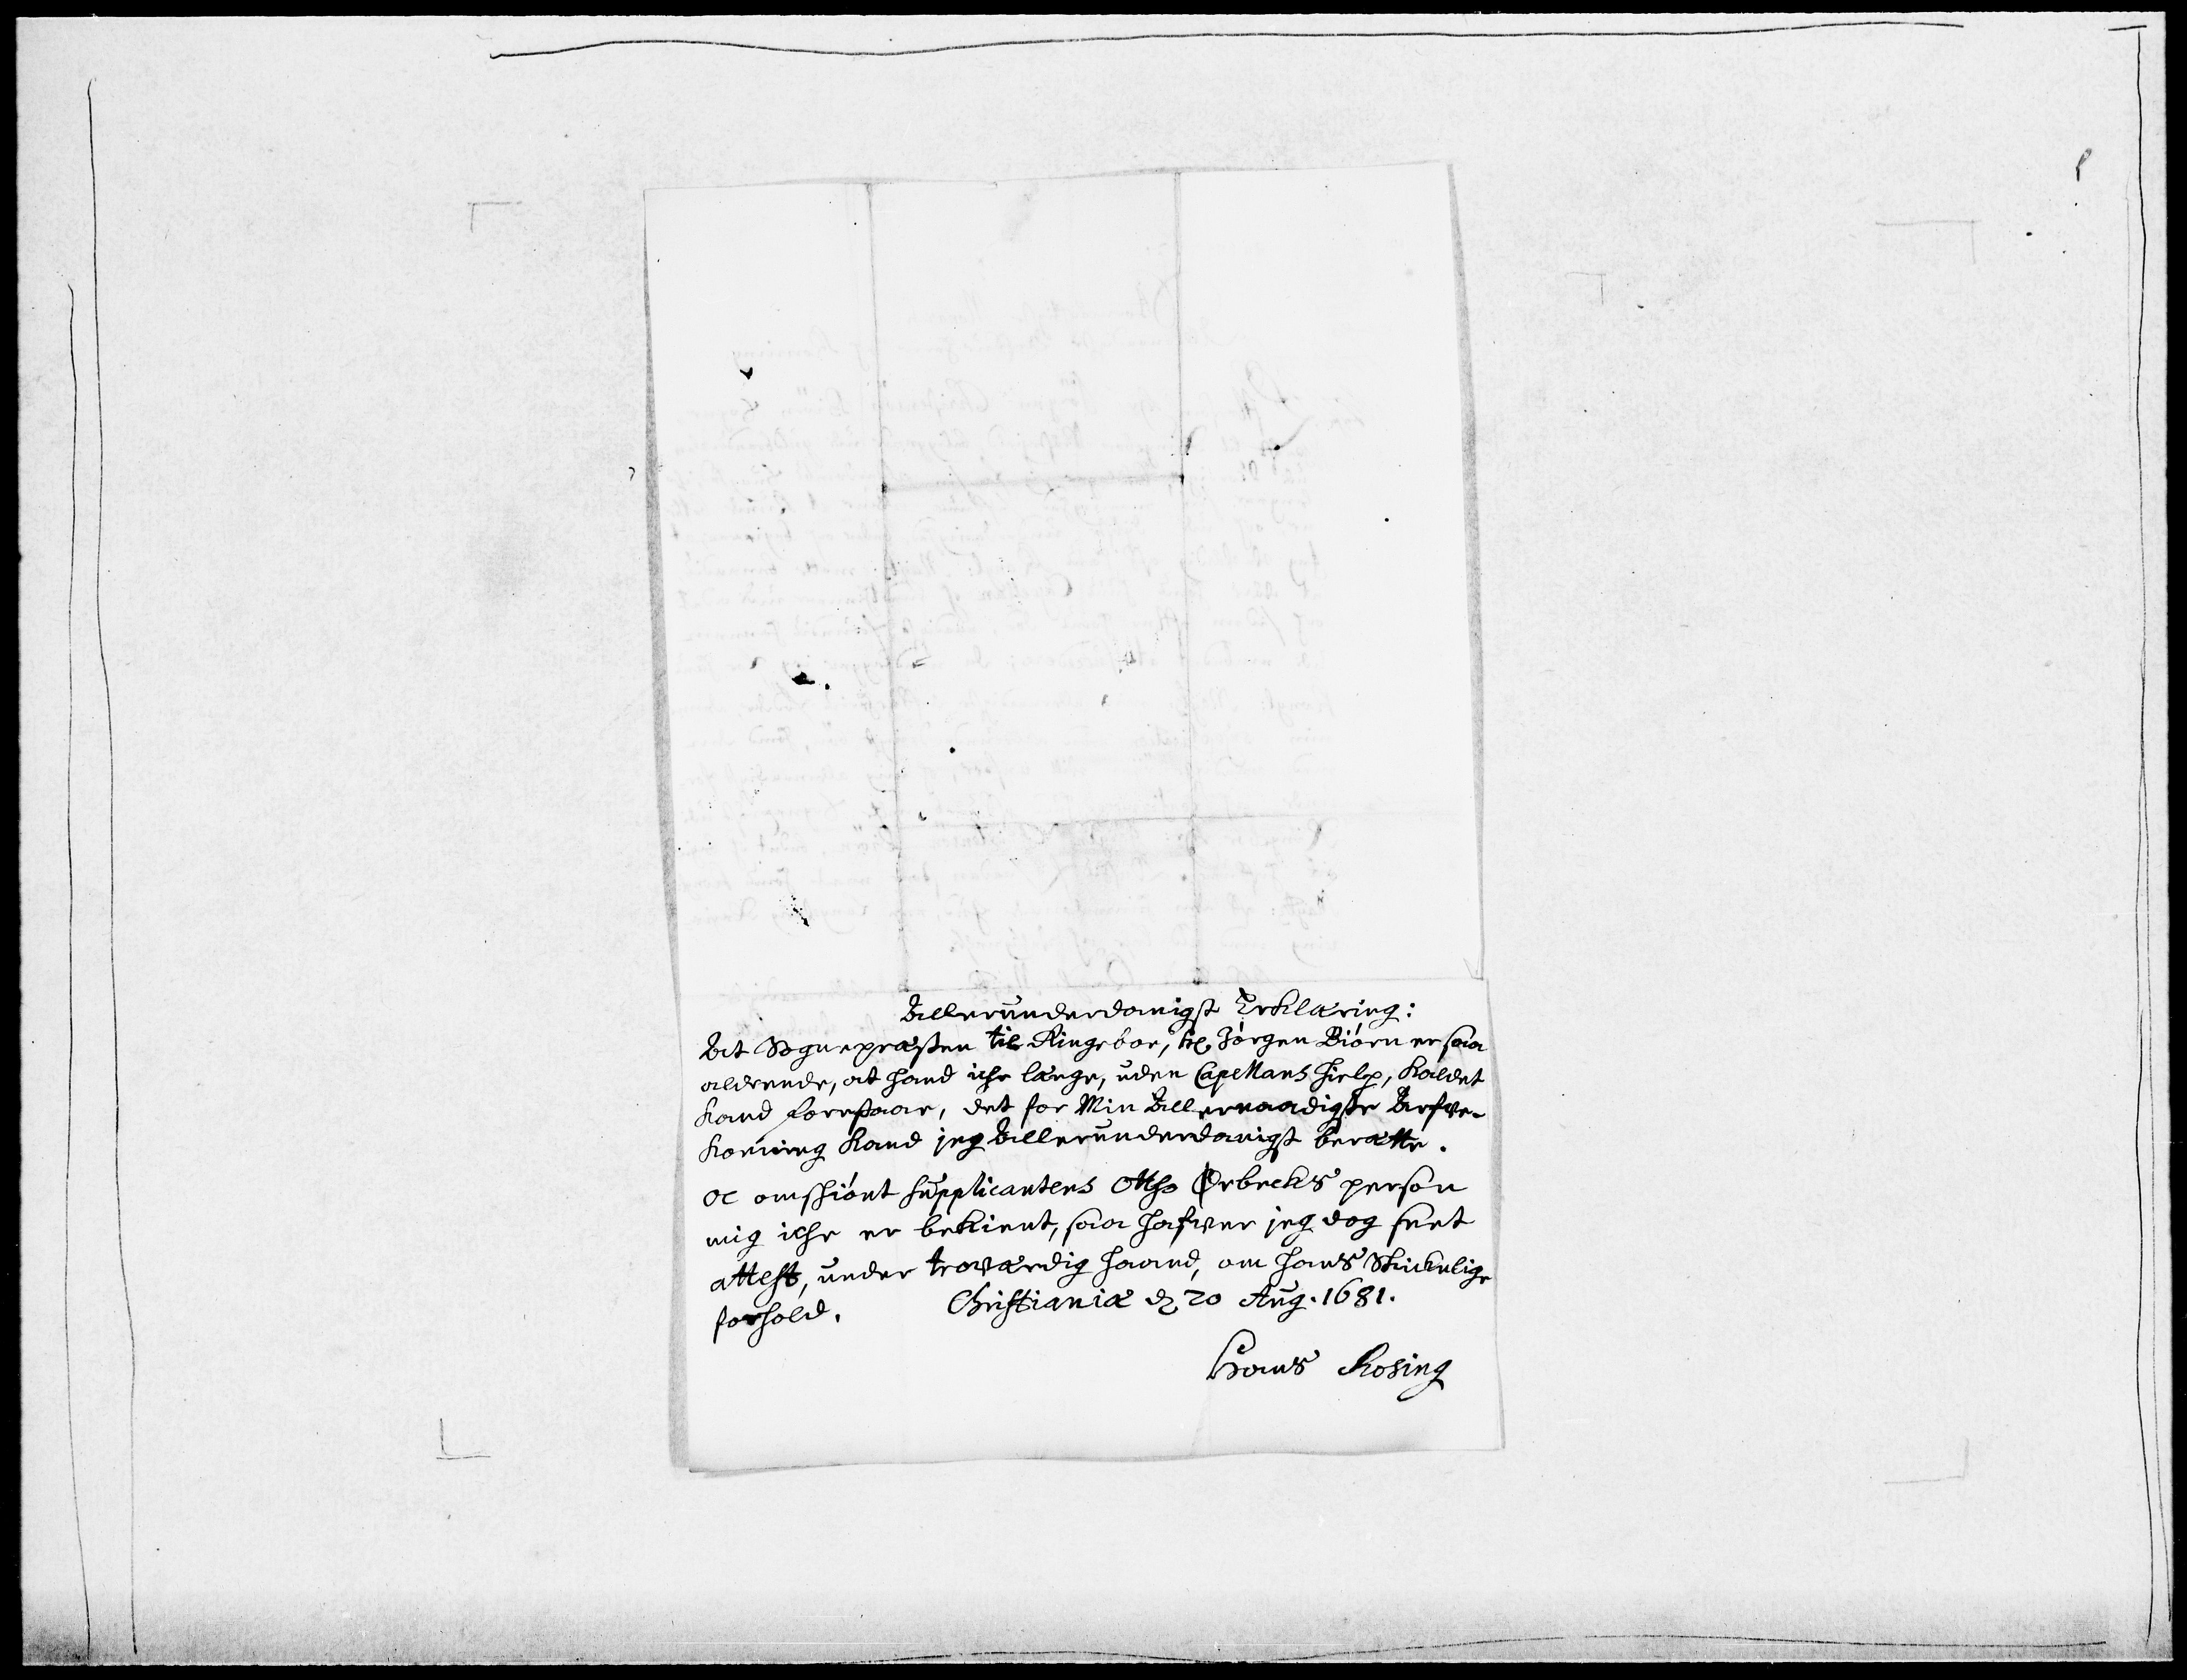 Allerunderdanigst Erklæring:
At Sognepræsten til Ringeboe, hr Jörgen Biörn er saa
aldrende, at hand iche længe, uden Capellans hielp, Kaldet
kand forestaae, det for Min Allernaadigste Arfve-
Konning kand jeg Allerunderdanigst berætte.
Oc omskiönt Supplicantens Otto Ørbechs person
mig iche er bekient, saa hafver jeg dog seet
attest, under troværdig haand, om hans Skickelige
forhold. Christianiæ d 20 Aug. 1681.
Hans Rosing